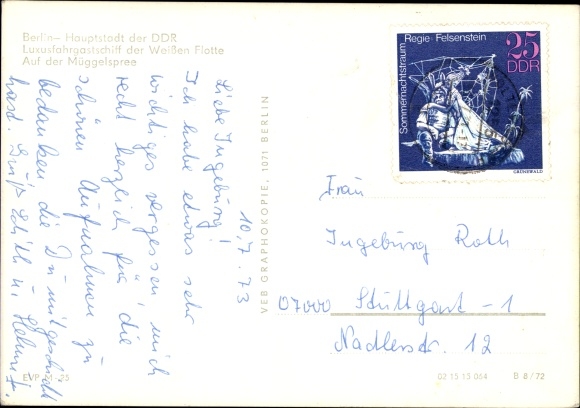 Berlin– Hauptstadt der DDR
Luxusfahrgastschiff der Weißen Flotte
Auf der Müggelspree
10.7.73
Liebe Ingeburg!
Ich habe etwas sehr
wichtiges vergessen, mich
recht herzlich für die
schönen Aufnahmen zu
bedanken die Du mitgeschickt
hast. Gruß Edith u. Helmut.
VEB GRAPHOKOPIE, 1071 BERLIN
Sommernachtstraum
Regie: Felsenstein
25
DDR
GRÜNEWALD
Frau
Ingeburg Roth
07000 Stuttgart - 1
Nadlerstr. 12
EVP 25
02 15 13 064
B 8/72